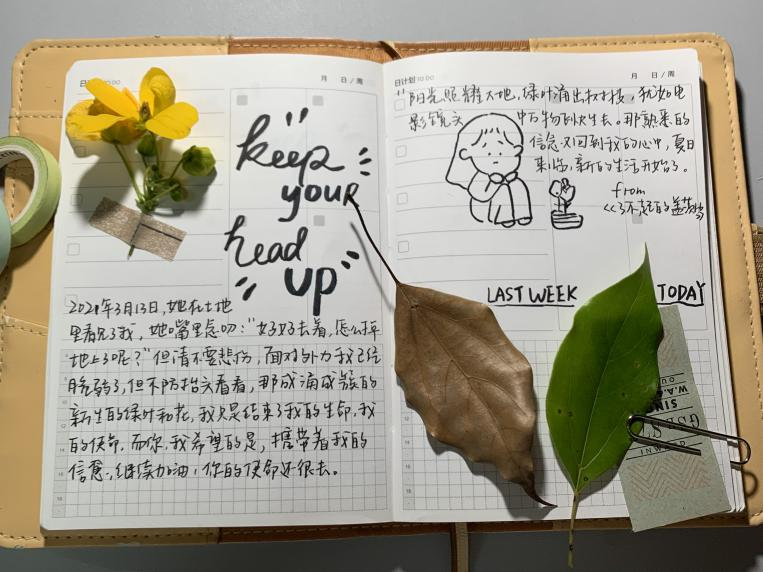 日计划 TO DO
月 日/周
"keep
your
head
up"
2021年3月13日,她在土地
里看见了我,她嘴里念叨:"好好去看,怎么掉
地上了呢?"但请不要悲伤,面对外力我已经
脆弱了,但不防抬头看看,那成涌成簇的
新生的绿叶和花,我只是结束了我的生命,我
的使命。而你,我希望的是,携带着我的
信息,继续加油,你的使命还很长。
日计划 TO DO
月 日/周
"阳光照耀大地,绿叶涌出树枝,犹如电
影镜头中万物飞快生长。那熟悉的
信念又回到我的心中,夏日
来临,新的生活开始了。
from
《了不起的盖茨比》
LAST WEEK
TODAY